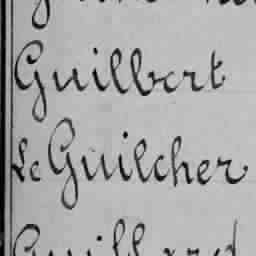 Guilbert
Le Guilcher